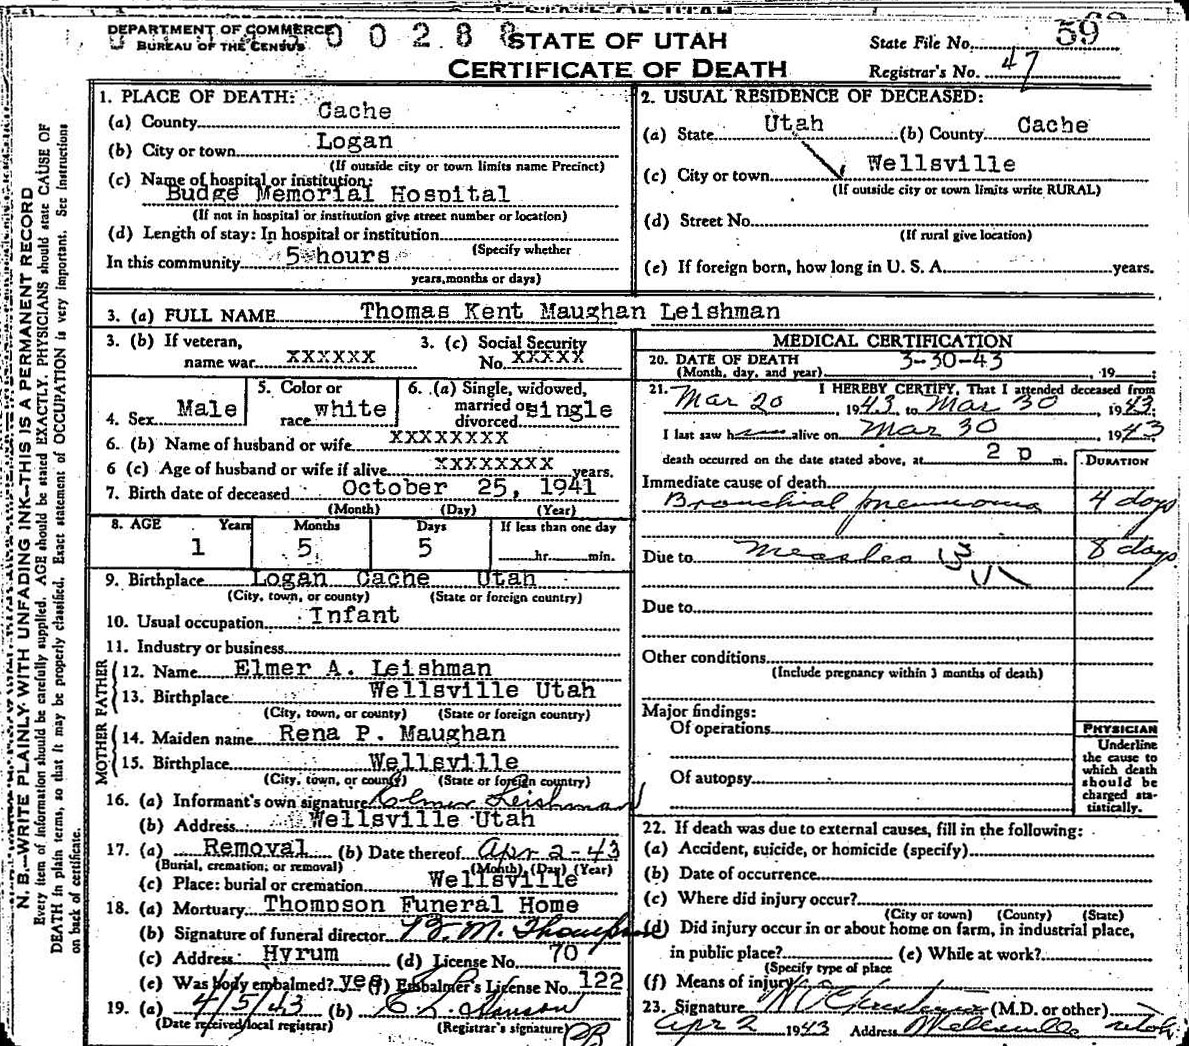 DEPARTMENT OF COMMERCE
BUREAU OF THE CENSUS
0 0 2 8 8
STATE OF UTAH
CERTIFICATE OF DEATH
State File No. 56
Registrar's No. 47
N. B.—WRITE PLAINLY WITH UNFADING INK—THIS IS A PERMANENT RECORD
Every item of information should be carefully supplied. AGE should be stated EXACTLY. PHYSICIANS should state CAUSE OF
DEATH in plain terms, so that it may be properly classified. Exact statement of OCCUPATION is very important. See Instructions
on back of certificate.
1. PLACE OF DEATH:
(a) County Cache
(b) City or town Logan
(If outside city or town limits name Precinct)
(c) Name of hospital or institution:
Budge Memorial Hospital
(If not in hospital or institution give street number or location)
(d) Length of stay: In hospital or institution
(Specify whether
In this community 5 hours
years, months or days)
2. USUAL RESIDENCE OF DECEASED:
(a) State Utah (b) County Cache
(c) City or town Wellsville
(If outside city or town limits write RURAL)
(d) Street No.
(If rural give location)
(e) If foreign born, how long in U. S. A. years.
3. (a) FULL NAME Thomas Kent Maughan Leishman
3. (b) If veteran, 3. (c) Social Security
name war XXXXXX No. XXXXX
4. Sex Male 5. Color or race white 6. (a) Single, widowed, married or divorced single
6. (b) Name of husband or wife XXXXXXXX
6 (c) Age of husband or wife if alive XXXXXXXX years.
7. Birth date of deceased October 25, 1941
(Month) (Day) (Year)
8. AGE Years Months Days If less than one day
1 5 5 hr. min.
9. Birthplace Logan Cache Utah
(City, town, or county) (State or foreign country)
10. Usual occupation Infant
11. Industry or business
FATHER
12. Name Elmer A. Leishman
13. Birthplace Wellsville Utah
(City, town, or county) (State or foreign country)
MOTHER
14. Maiden name Rena P. Maughan
15. Birthplace Wellsville
(City, town, or county) (State or foreign country)
16. (a) Informant's own signature Elmer Leishman
(b) Address Wellsville Utah
17. (a) Removal (b) Date thereof Apr 2-43
(Burial, cremation, or removal) (Month) (Day) (Year)
(c) Place: burial or cremation Wellsville
18. (a) Mortuary Thompson Funeral Home
(b) Signature of funeral director M. Thompson
(c) Address Hyrum (d) License No. 70
(e) Was body embalmed? yes (f) Embalmer's License No. 122
19. (a) 4/5/43 (b) Hanson
(Date received local registrar) (Registrar's signature)
MEDICAL CERTIFICATION
20. DATE OF DEATH 3-30-43
(Month, day, and year) , 19 ;
21. I HEREBY CERTIFY, That I attended deceased from
Mar 20, 1943, to Mar 30 1943;
I last saw h alive on Mar 30, 1943
death occurred on the date stated above, at 2 p m.
DURATION
Immediate cause of death
Bronchial pneumonia 4 days
Due to Measles 8 days
Due to
Other conditions
(Include pregnancy within 3 months of death)
Major findings:
Of operations
Of autopsy
PHYSICIAN
Underline
the cause to
which death
should be
charged sta-
tistically.
22. If death was due to external causes, fill in the following:
(a) Accident, suicide, or homicide (specify)
(b) Date of occurrence
(c) Where did injury occur?
(City or town) (County) (State)
(d) Did injury occur in or about home on farm, in industrial place,
in public place? (e) While at work?
(Specify type of place
(f) Means of injury
23. Signature (M.D. or other)
Apr 2 1943 Address Wellsville Utah